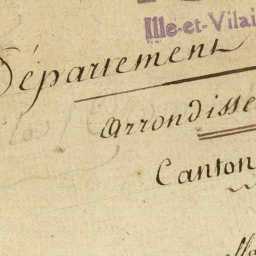 Ille-et-Vilai
Département
Arrondisse
Canton